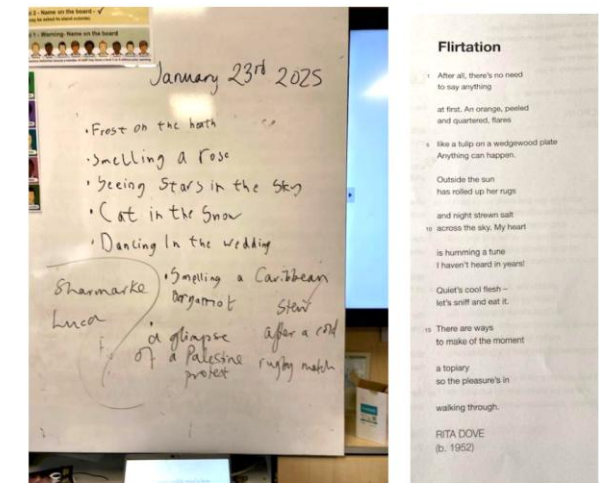 2 - Name on the board - ✓
may be asked to stand outside)
1 - Warning- Name on the board
January 23rd 2025
• Frost on the heath
• Smelling a rose
• Seeing Stars in the Sky
• Cat in the Snow
• Dancing In the wedding
• Smelling a Caribbean
Bergamot Stew
Sharmarke
Luca
a glimpse after a cold
of a Palestine rugby match
protest
Flirtation
1 After all, there's no need
to say anything
at first. An orange, peeled
and quartered, flares
5 like a tulip on a wedgewood plate
Anything can happen.
Outside the sun
has rolled up her rugs
and night strewn salt
10 across the sky. My heart
is humming a tune
I haven't heard in years!
Quiet's cool flesh –
let's sniff and eat it.
15 There are ways
to make of the moment
a topiary
so the pleasure's in
walking through.
RITA DOVE
(b. 1952)